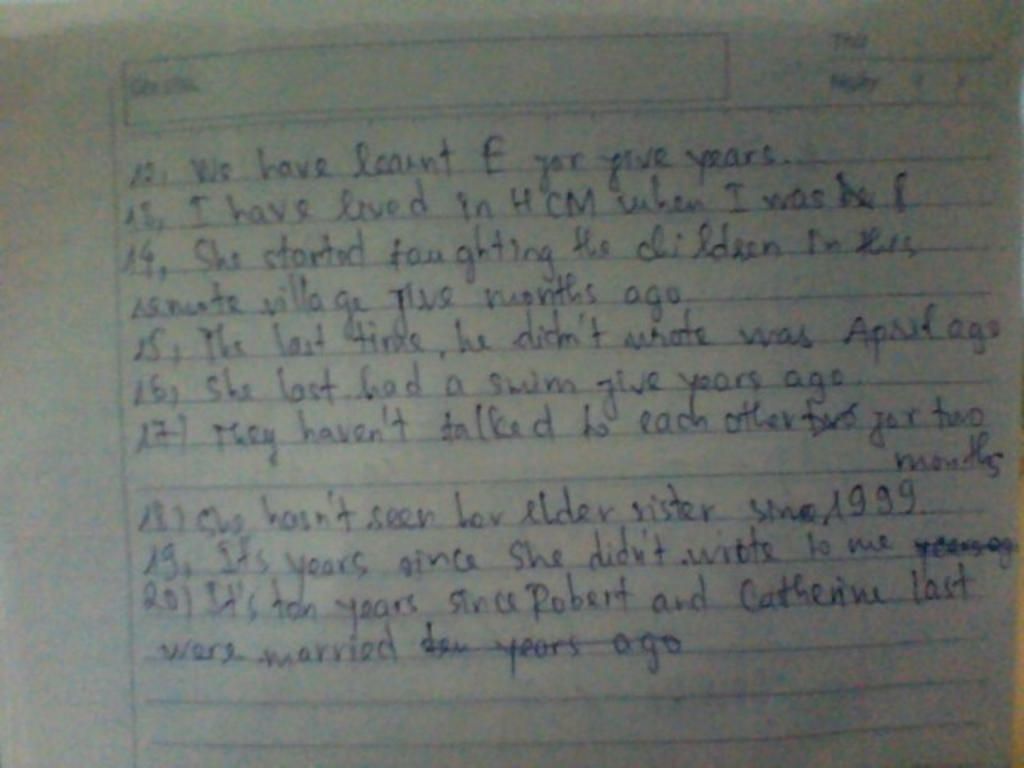 Thứ
Ngày / /
12, We have learnt E for five years.
13, I have lived in HCM when I was 8
14, She started taughting the children in this
remote village five months ago
15, The last time, he didn't wrote was April ago
16, She last had a swim five years ago.
17) They haven't talked to each other for two
months
18) She hasn't seen her elder sister since 1999.
19, It's years since she didn't wrote to me years ago
20) It's ten years since Robert and Catherine last
were married ten years ago